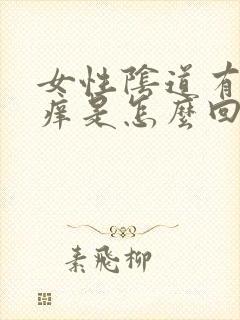 女性陰道有
痒是怎麼回
素飛柳